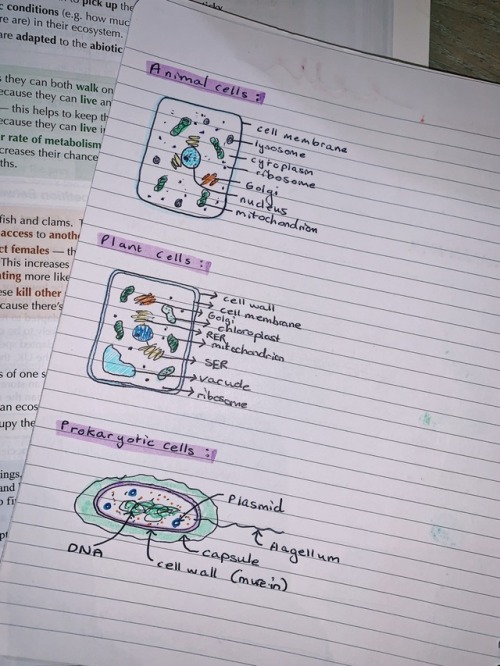 to pick up the
c conditions (e.g. how muc
re are) in their ecosystem.
are adapted to the abiotic
s they can both walk on
ecause they can live an
— this helps to keep th
ecause they can live i
r rate of metabolism
creases their chance
ths.
fish and clams.
access to anoth
ct females — th
This increases
ating more like
ese kill other
cause there's
s of one s
an ecos
upy the
ings,
and
Animal cells:
cell membrane
lysosome
cytoplasm
ribosome
Golgi
nucleus
mitochondrion
Plant cells:
cell wall
cell membrane
Golgi
chloroplast
RER
mitochondrion
SER
vacuole
ribosome
Prokaryotic cells:
Plasmid
flagellum
capsule
DNA
cell wall (murein)